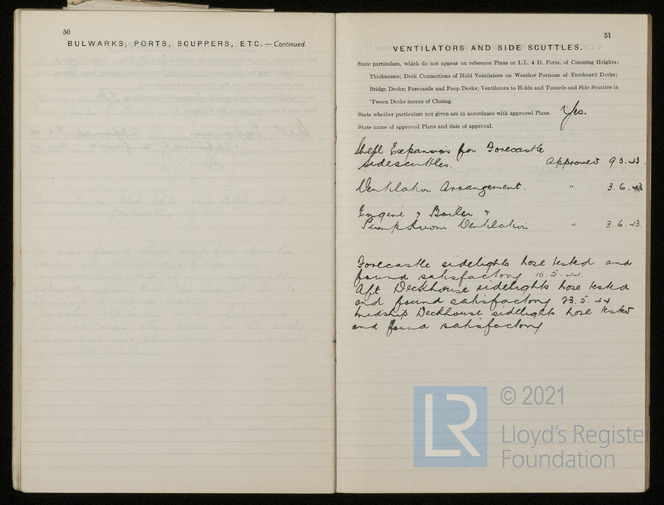 50
BULWARKS, PORTS, SCUPPERS, ETC.—Continued.
51
VENTILATORS AND SIDE SCUTTLES.
State particulars, which do not appear on reference Plans or L.L. 4 D. Form, of Coaming Heights;
Thicknesses; Deck Connections of Hold Ventilators on Weather Portions of Freeboard Decks;
Bridge Decks; Forecastle and Poop Decks; Ventilators to Holds and Tunnels and Side Scuttles in
'Tween Decks means of Closing.
State whether particulars not given are in accordance with approved Plans. Yes.
State name of approved Plans and date of approval.
Shell Expansion for Forecastle
sidescuttles. Approved 9.3.43
Ventilation Arrangement. " 3.6.43
Engine & Boiler &
Pumproom Ventilation " 3.6.43.
Forecastle sidelights hose tested and
found satisfactory 10.5.44
Aft Deckhouse sidelights hose tested
and found satisfactory 23.5.44
midship Deckhouse sidelights hose tested
and found satisfactory
LR
© 2021
Lloyd's Register
Foundation